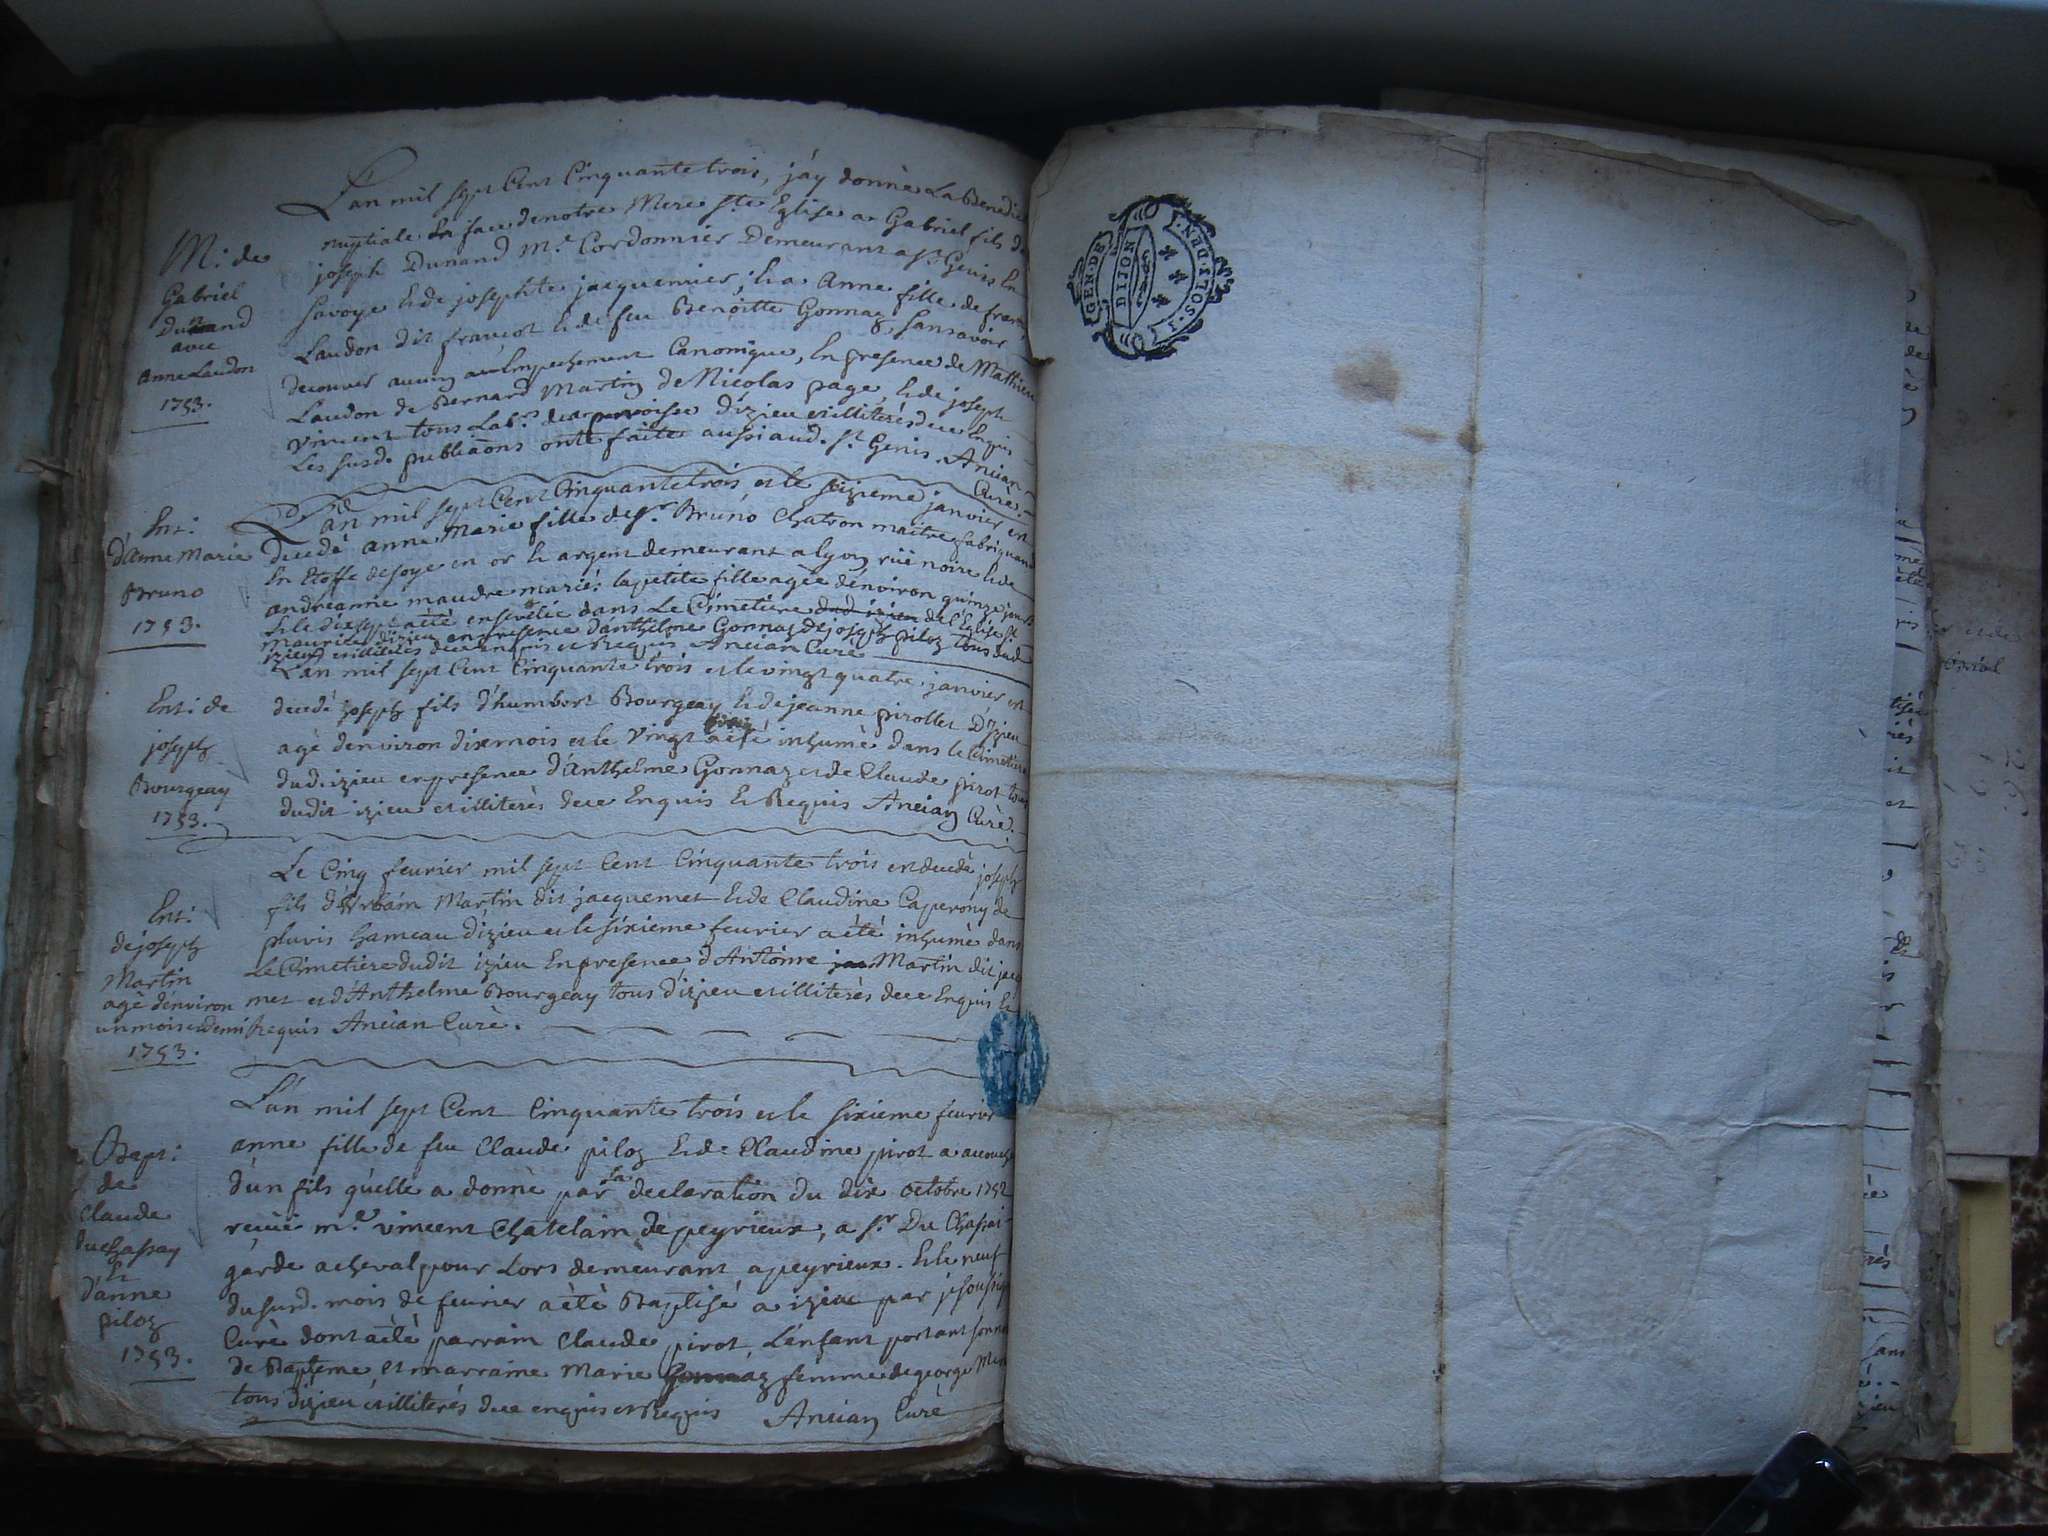 L'an mil sept Cent Cinquante trois, j'ay donnè La Benedic
nuptiale En face denotre Mere Ste Eglise a Gabriel fils de
joseph Dunand Me Cordonnier Demeurant a St Genis En
Savoye & de josephte jacquemier, & a Anne fille de
Laudon dit francot & de feu Benoitte Gonnaz & sans avoir
decouver aucun Empechement Canonique, En presence de Mathieu
Laudon de Bernard Martin de Nicolas page, & de joseph
vincent tous Labrs de la parroisse d'izieu et illiterés de ce Enquis
Les susd. publiaons ont faite aussi aud. St Genis. Ancian
Curè.
M: de
Gabriel
Dunand
avec
Anne Laudon
1753.
L'an mil sept Cent Cinquante trois et le seizieme janvier est
decedé anne Marie fille de Sr Bruno Chatron maitre fabriquand
En Etoffe de soye en or & argent demeurant a lyon rüe noire & de
andreanne maudre mariés la petite fille agèe d'environ quinze jours
& le dixsept a èté ensevelie dans Le Cimetiere dud izieu de l'Eglise St
Maurice d'izieu en presence d'anthelme Gonnaz de joseph piloz tous dud
izieu et illiterés de ce enquis et Requis Ancian Curè
Ent:
d'Anne Marie
Bruno
1753.
L'an mil sept Cent Cinquante trois et le vingt quatre janvier est
decedé joseph fils d'humbert Bourgeay & de jeanne pirollet D'izieu
agé d'environ dix mois et le vingt a èté inhumè dans le Cimetiere
dud. izieu en presence d'Anthelme Gonnaz et de Claude pirot tous
dudit izieu et illiterès de ce Enquis & Requis Ancian Curè.
Ent: de
joseph
Bourgeay
1753.
Le Cinq fevrier mil sept Cent Cinquante trois est decedè joseph
fils d'Urbain Martin dit jacquemet & de Claudine Caperony de
pluvis hameau d'izieu et le sixieme fevrier a èté inhumè dans
Le Cimetiere dudit izieu En presence d'Antoine jac Martin dit jacq
met et d'Anthelme Bourgeay tous d'izieu et illiterès de ce Enquis &
Requis Ancian Curè.
Ent:
de joseph
Martin
agè d'environ
un mois et demi
1753.
L'an mil sept Cent Cinquante trois et le sixieme fevrier
anne fille de feu Claude piloz & de Claudine pirot a acouche
d'un fils qu'elle a donnè par la declaration du dix octobre 1752
reçüe me vincent Chatelain de peyrieux, a Sr Du Chassai
garde a cheval pour Lors demeurant a peyrieux. & le neuf
dusurd. mois de fevrier a èté Baptisé a izieu par je soussig
Curè dont a èté parrain Claude pirot, L'enfant portant son no
de Bapteme, et marraine Marie Gonnaz femme de george
tous d'izieu et illiterés de ce enquis et Requis Ancian Curè
Bapt:
de
Claude
du Chassay
&
d'anne
piloz
1753.
GEN. DE
DIJON